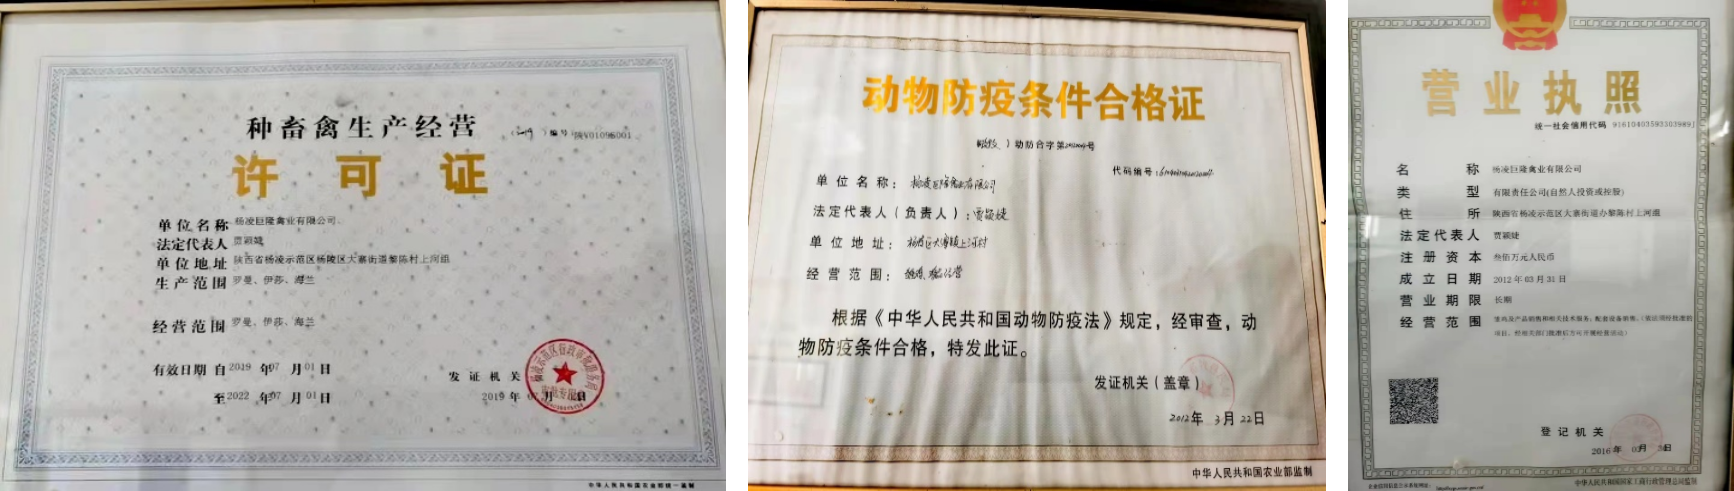 种畜禽生产经营
(2019)编号:陕V01096001
许可证
单位名称 杨凌巨隆禽业有限公司
法定代表人 贾颖婕
单位地址 陕西省杨凌示范区杨陵区大寨街道黎陈村上河组
生产范围 罗曼、伊莎、海兰
经营范围 罗曼、伊莎、海兰
有效日期 自2019年07月01日
至2022年07月01日
发证机关
2019年07月
中华人民共和国农业部统一监制
动物防疫条件合格证
动防合字第 号
代码编号:
单位名称:杨凌巨隆禽业有限公司
法定代表人(负责人):贾颖婕
单位地址:杨陵区大寨镇上河村
经营范围:
根据《中华人民共和国动物防疫法》规定,经审查,动
物防疫条件合格,特发此证。
发证机关(盖章)
2012年3月22日
中华人民共和国农业部监制
营业执照
统一社会信用代码
名称 杨凌巨隆禽业有限公司
类型 有限责任公司(自然人投资或控股)
住所 陕西省杨凌示范区大寨街道办黎陈村上河组
法定代表人 贾颖婕
注册资本 叁佰万元人民币
成立日期 2012年03月31日
营业期限 长期
经营范围 雏鸡及产品销售和相关技术服务;配套设备销售。(依法须经批准的
项目,经相关部门批准后方可开展经营活动)
登记机关
2016年03月 日
中华人民共和国国家工商行政管理总局监制